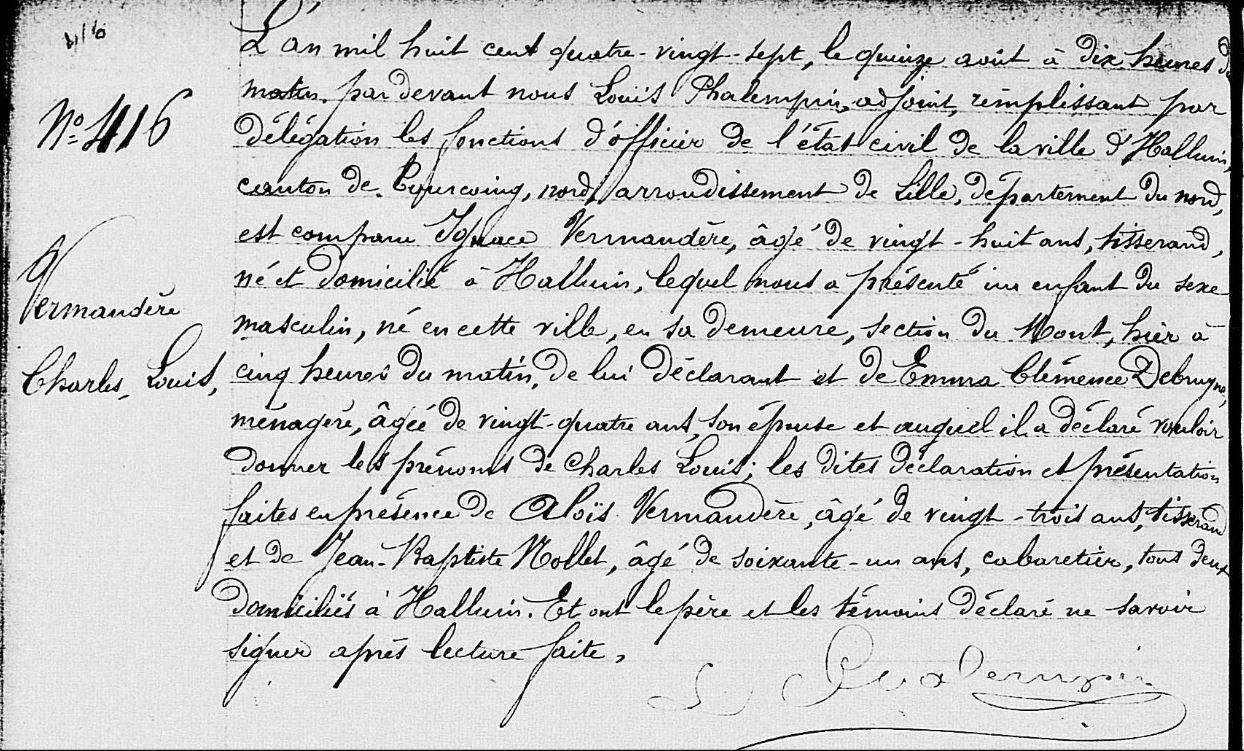 416
N° 416
Vermandère
Charles Louis,
L'an mil huit cent quatre-vingt-sept, le quinze août à dix heures du
matin, par devant nous Louis Phalempin, adjoint, remplissant par
délégation les fonctions d'officier de l'état civil de la ville d'Halluin,
canton de Tourcoing, nord, arrondissement de Lille, département du nord,
est comparu Ignace Vermandère, âgé de vingt-huit ans, tisserand,
né et domicilié à Halluin, lequel nous a présenté un enfant du sexe
masculin, né en cette ville, en sa demeure, section du Mont, hier à
cinq heures du matin, de lui déclarant et de Emma Clémence Debruyne,
ménagère, âgée de vingt-quatre ans, son épouse et auquel il a déclaré vouloir
donner les prénoms de Charles Louis; les dites déclaration et présentation
faites en présence de Aloïs Vermandère, âgé de vingt-trois ans, tisserand
et de Jean-Baptiste Nollet, âgé de soixante-un ans, cabaretier, tous deux
domiciliés à Halluin. Et ont le père et les témoins déclaré ne savoir
signer après lecture faite.
L Phalempin